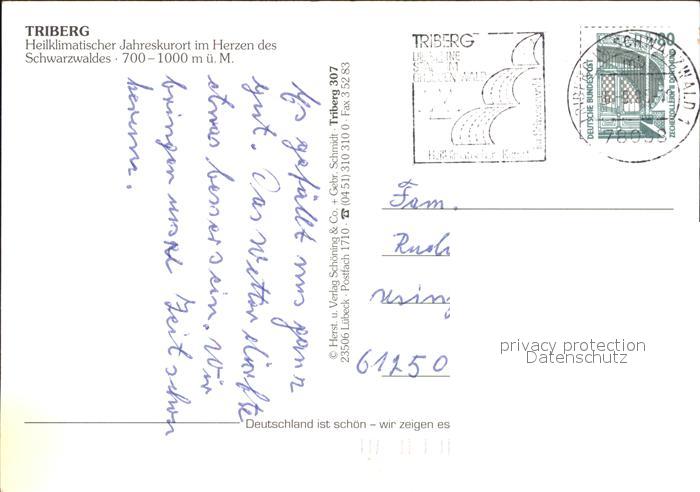 TRIBERG
Heilklimatischer Jahreskurort im Herzen des
Schwarzwaldes · 700–1000 m ü. M.
Es gefällt uns ganz
gut. Das Wetter dürfte
etwas besser sein. Wir
bringen unsre Zeit schon
herum.
© Herst. u. Verlag Schöning & Co. + Gebr. Schmidt · Triberg 307
23506 Lübeck · Postfach 1710 · ☎ (0451) 310 310 0 · Fax 3 52 83
TRIBERG
DEUTSCHE BUNDESPOST
ZECHE ZOLLERN II DORTMUND
Fam.
61250
privacy protection
Datenschutz
Deutschland ist schön – wir zeigen es